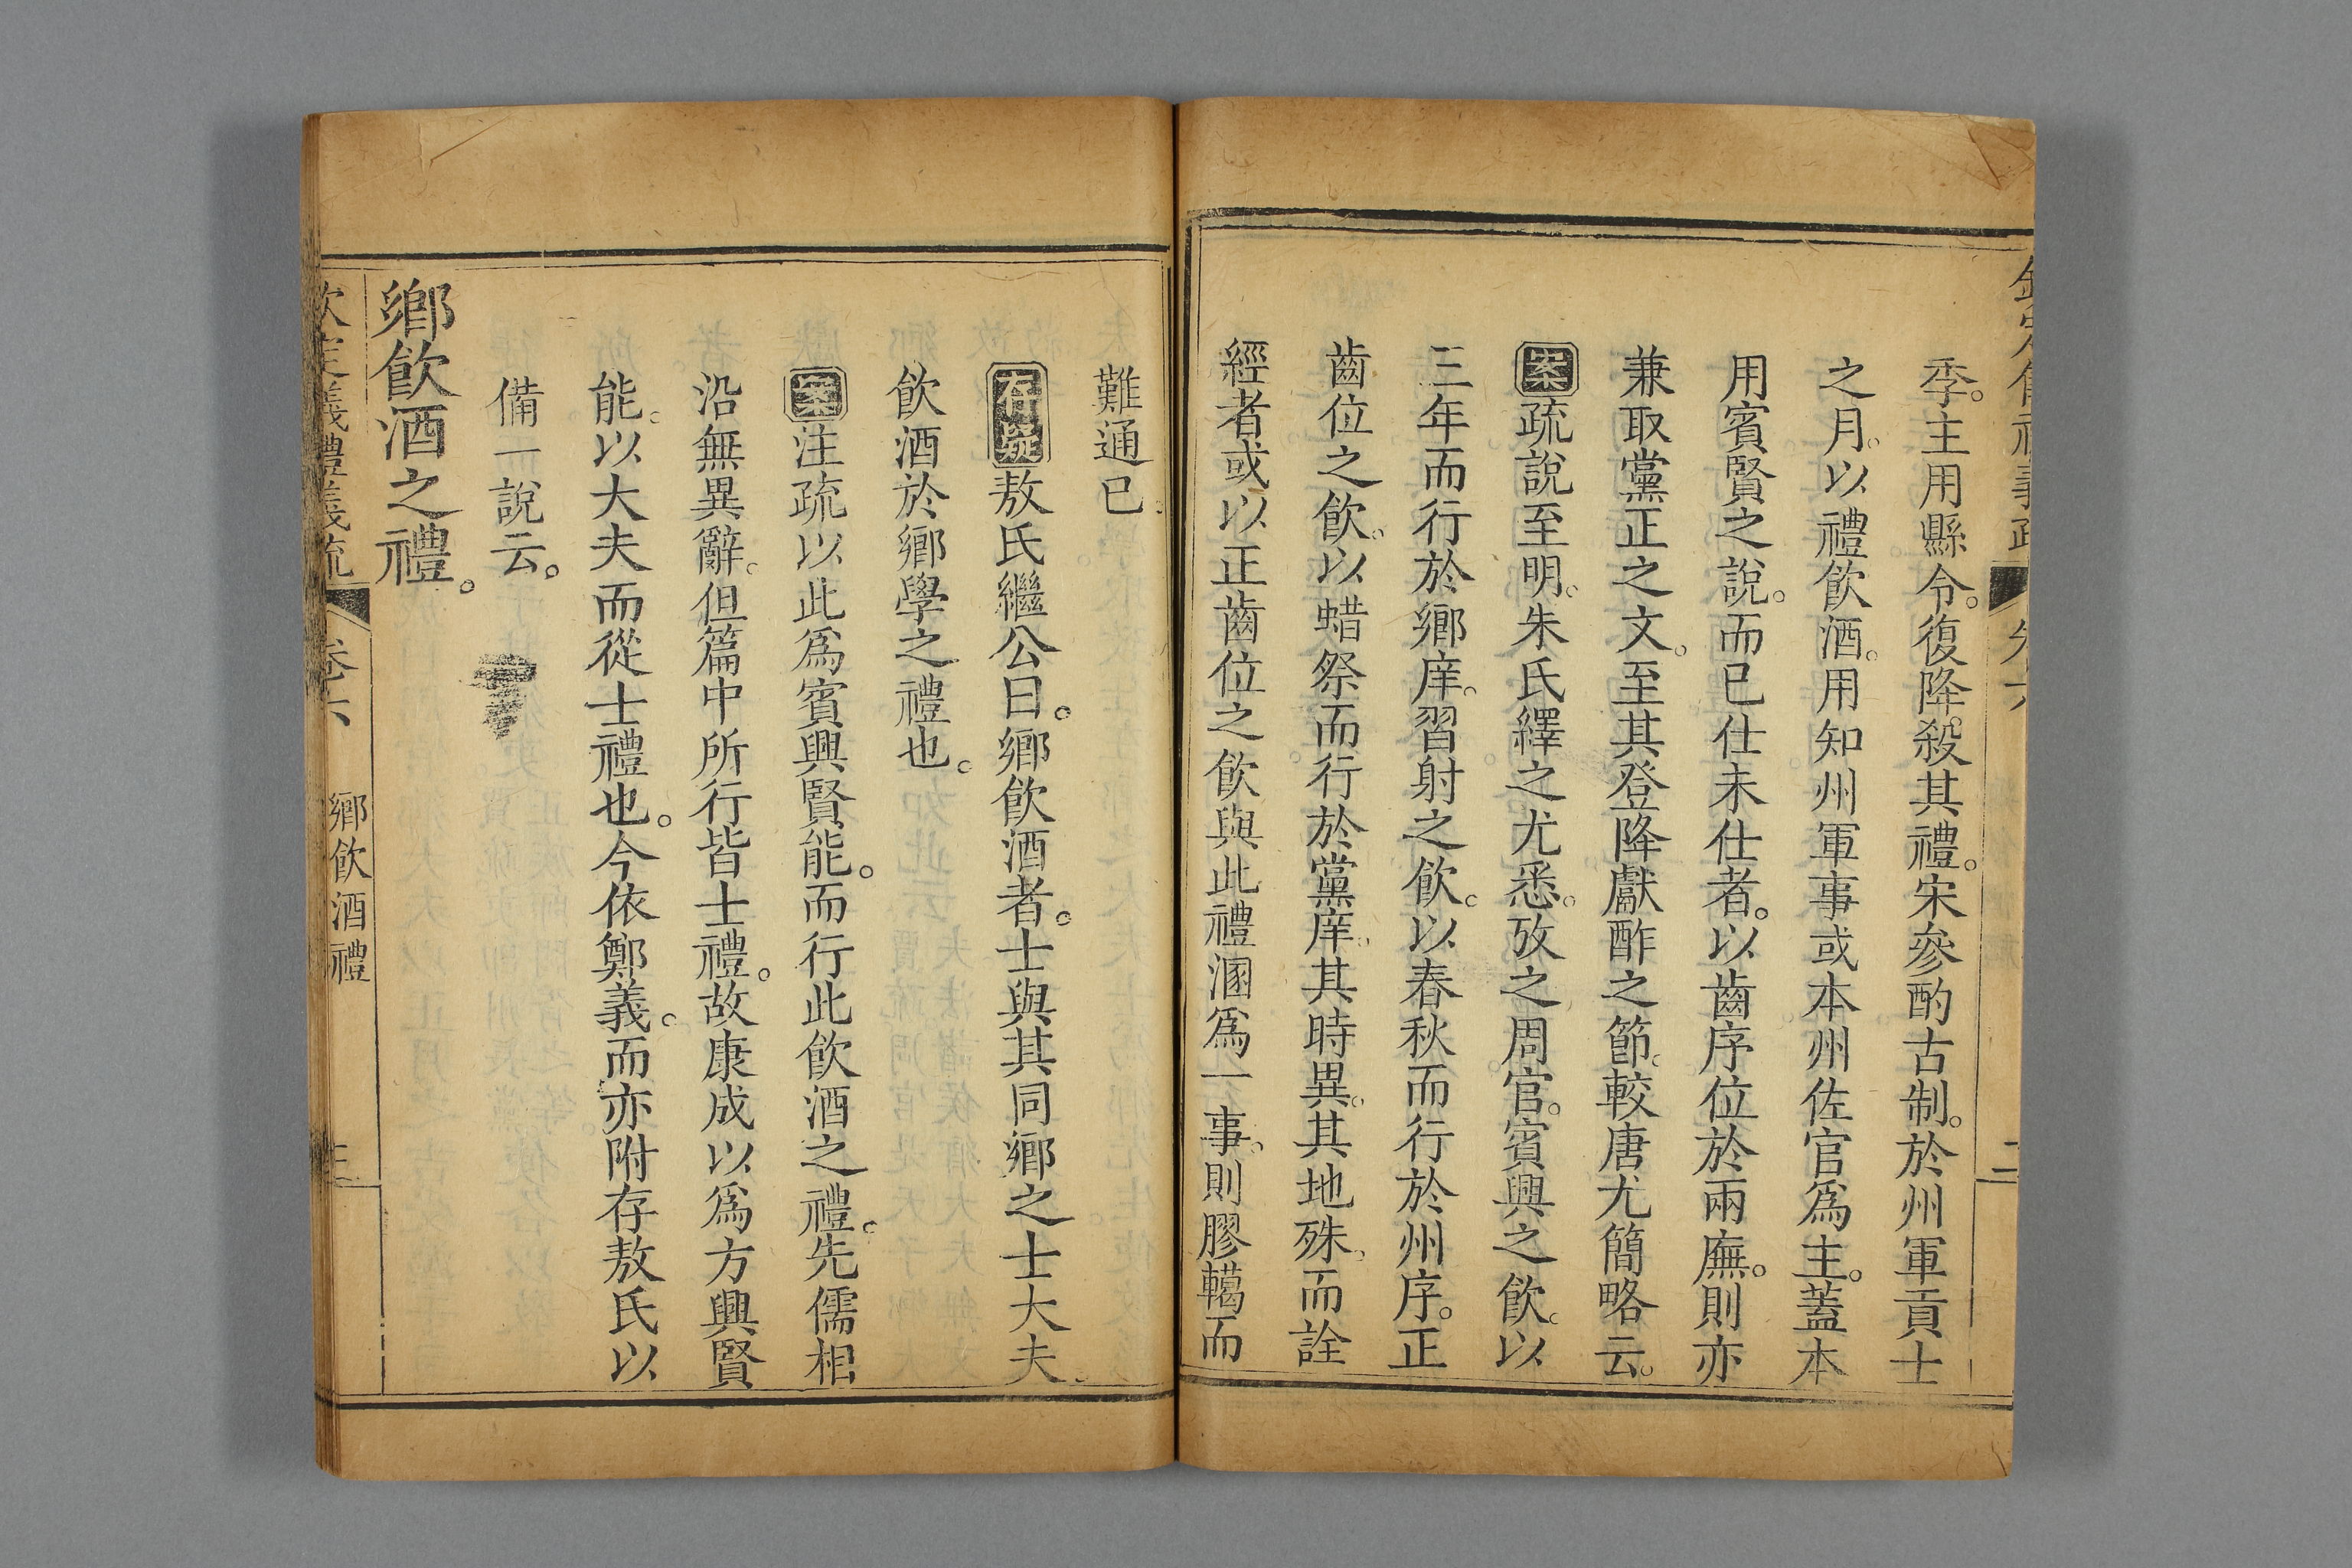 季。主用縣令。復降殺其禮。宋參酌古制。於州軍貢士
之月。以禮飲酒。用知州軍事或本州佐官爲主。蓋本
用賓賢之說。而已仕未仕者。以齒序位於兩廡。則亦
兼取黨正之文。至其登降獻酢之節。較唐尤簡略云。
案疏說至明。朱氏繹之尤悉。攷之周官。賓興之飲。以
三年而行於鄉庠。習射之飲。以春秋而行於州序。正
齒位之飲。以蜡祭而行於黨庠。其時異。其地殊。而詮
經者或以正齒位之飲與此禮溷爲一事。則膠轕而
難通已。
存疑敖氏繼公曰。鄉飲酒者。士與其同鄉之士大夫。
飲酒於鄉學之禮也。
案注疏以此爲賓興賢能。而行此飲酒之禮。先儒相
沿無異辭。但篇中所行皆士禮。故康成以爲方興賢
能。以大夫而從士禮也。今依鄭義。而亦附存敖氏以
備一說云。
鄉飲酒之禮。
卷六 鄉飲酒禮